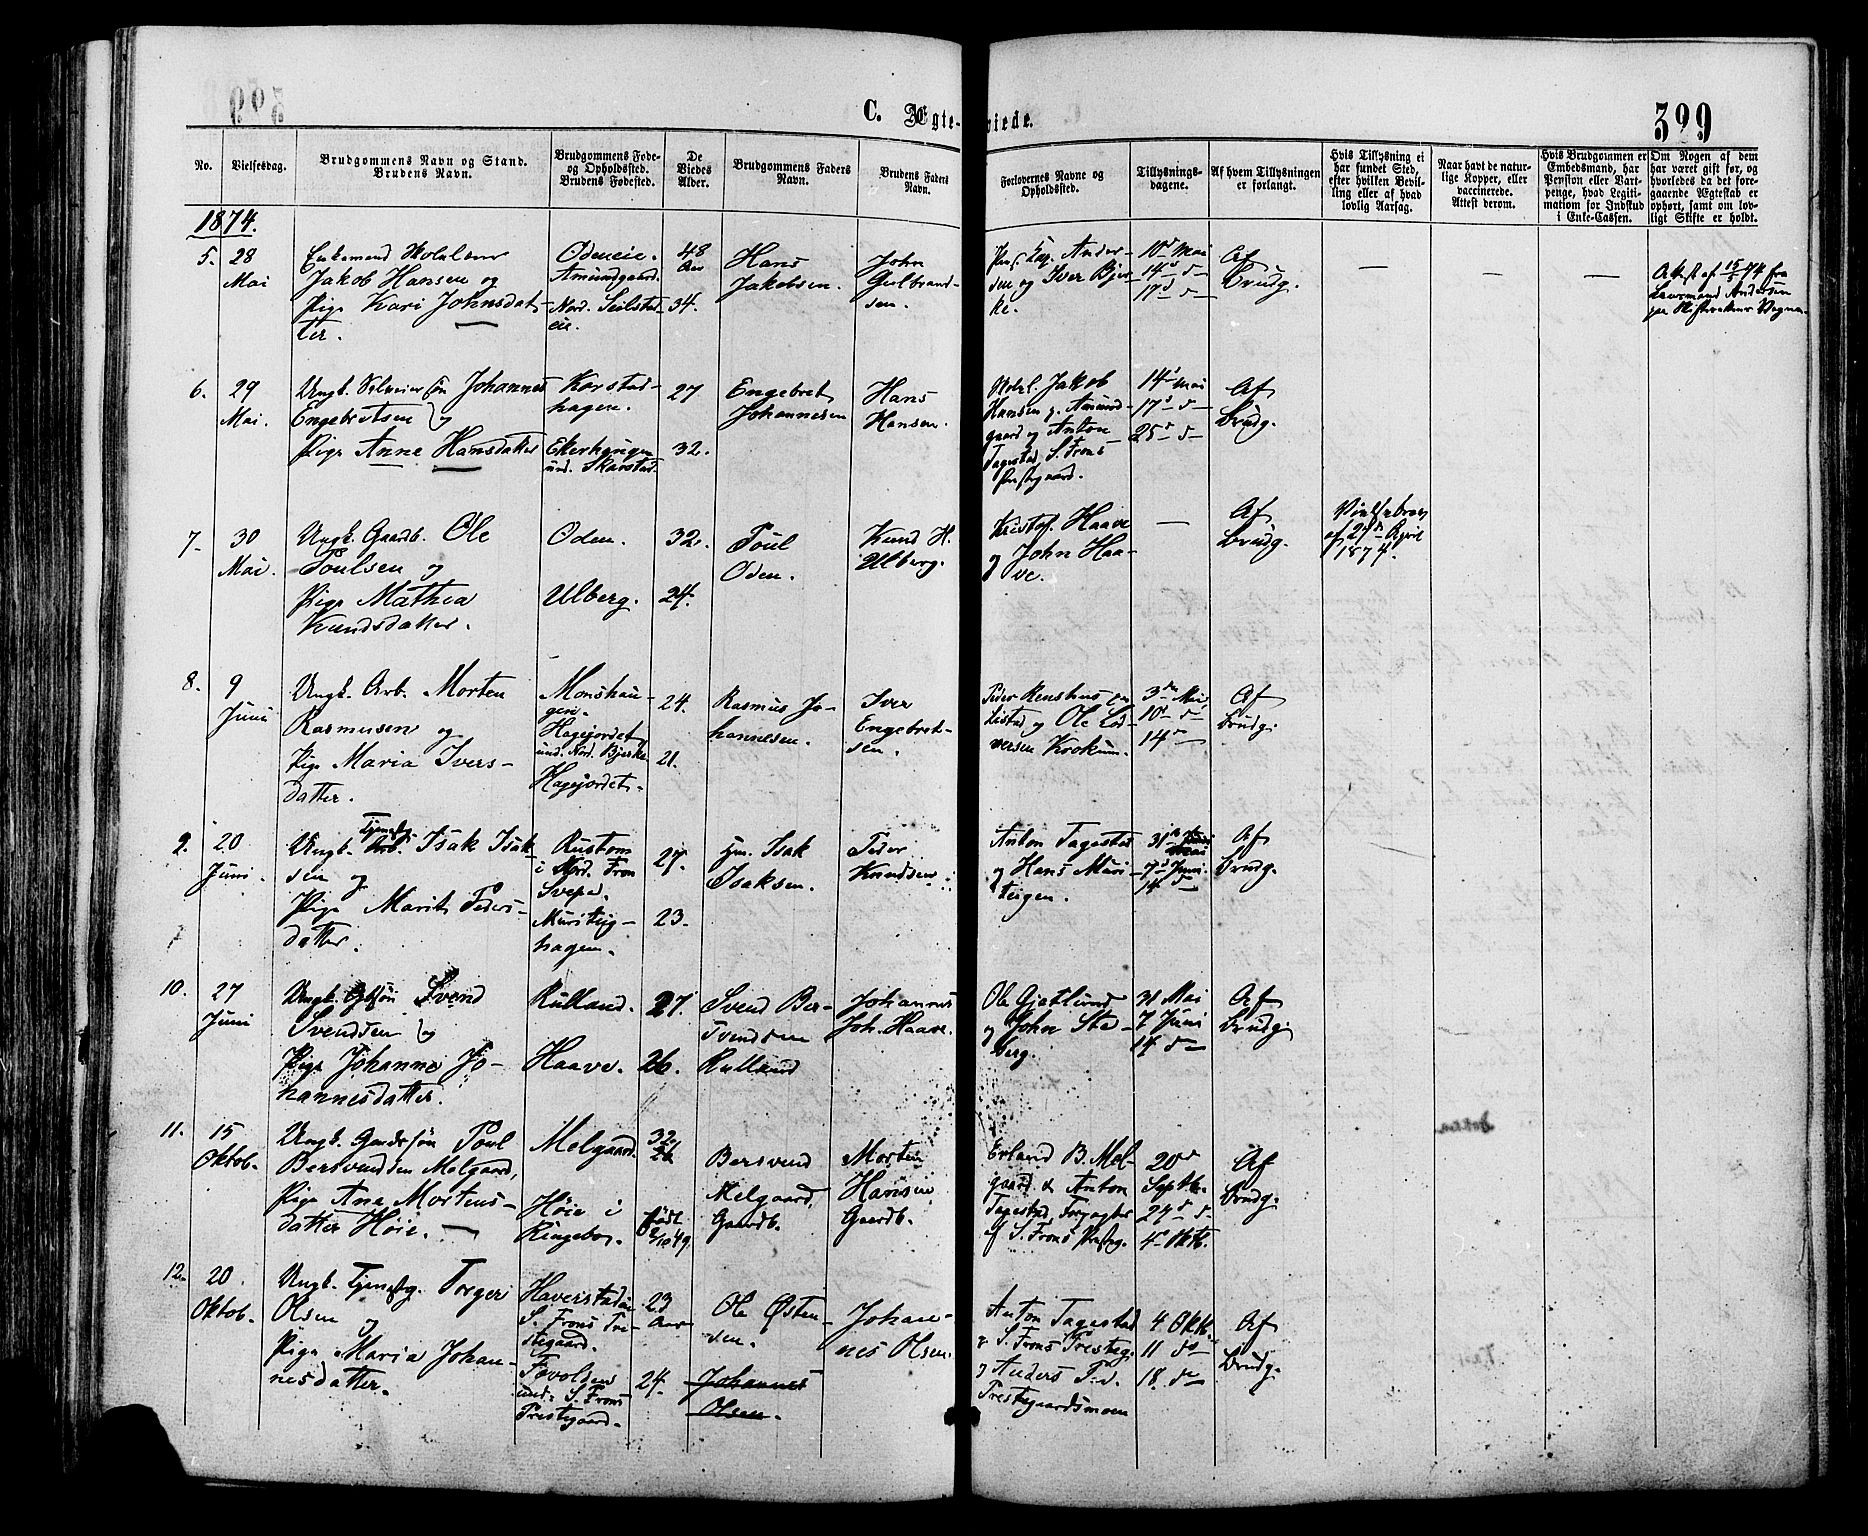 C. Ægte-viede.
399
No.
Vielsesdag.
Brudgommens Navn og Stand.
Brudens Navn.
Brudgommens Føde-
og Opholdssted.
Brudens Fødested.
De
Viedes
Alder.
Brudgommens Faders
Navn.
Brudens Faders
Navn.
Forlovernes Navne og
Opholdssted.
Tillysnings-
dagene.
Af hvem Tillysningen
er forlangt.
Hvis Tillysning ei
har fundet Sted,
efter hvilken Bevil-
ling eller af hvad
lovlig Aarsag.
Naar havt de natur-
lige Kopper, eller
vaccinerede.
Attest derom.
Hvis Brudgommen er
Embedsmand, har
Pension eller Vart-
penge, hvad Legiti-
mation for Indskud
i Enke-Cassen.
Om Nogen af dem
har været gift før, og
hvorledes da det fore-
gaaende Ægteskab er
ophørt, samt om lov-
ligt Skifte er holdt.
1874.
5. 28
Mai
Enkemand
Jakob Hansen og
Pige Kari Johnsdat-
ter.
Odeneie.
Amundgaard.
Nord. Seilstad-
eie.
48
Aar
34.
Hans
Jakobsen.
John
Gulbrand-
sen.
Ander-
sen og Iver Bjer-
ke.
10d Mai
14d d
17d d
Af
Brudg.
Att. af 15/5 74 fra
Lensmand Andersen
6. 29
Mai.
Ungk. Selveiersøn Johannes
Engebretsen og
Pige Anne Hansdatter
Korstad-
hagen.
Ekerhaugen
und. Skarstad.
27
32.
Engebret
Johannesen
Hans
Hansen.
Jakob
Hansen Amund-
gaard og Anton
Tagestad S. Frons
Præstegaard.
14d Mai
17d d
25d d
Af
Brudg.
7. 30
Mai.
Ungk. Gaardb. Ole
Poulsen og
Pige Mathea
Knudsdatter.
Oden.
Ulberg.
32.
24.
Poul
Oden.
Knud H.
Ulberg.
Kristof. Haave
og John Haa-
ve.
Af
Brudg.
Vielsebrev
af 27de April
1874.
8. 9
Juni
Ungk. Arb. Morten
Rasmusen og
Pige Maria Ivers-
datter.
Monshau-
gen.
Hagejordet
und. Nord. Bjerke
Hagejordet.
24.
21.
Rasmus Jo-
hannesen.
Iver
Engebret-
sen.
Listad og Ole
Krokum.
3die Mai
10d d
14d
Af
Brudg.
9. 20
Juni.
Ungk. Tjenestg. Isak Isak-
sen og
Pige Marit Peders-
datter.
Rustom
i Nord. Fron
Muristeig-
hagen.
27.
23.
Isak
Isaksen.
Peder
Knudsen
Anton Tagestad
og Hans Muri-
teigen.
31te Mai
7d Juni
14 d
Af
Brudg.
10. 27
Juni
Ungk. Svend
Svendsen og
Pige Johanne Jo-
hannesdatter.
Rulland.
Haave.
27.
26.
Svend Ber-
svendsen
Rulland
Johannes
Joh. Haave.
Ole Gjetlund
og John Sta-
berg.
31 Mai
7 Juni
14 d
Af
Brudg.
11. 15
Oktob.
Ungk. Gaardsøn Poul
Bersvendsen Melgaard,
Pige Ane Mortens-
datter Høie.
Melgaard.
Høie i
Ringebo.
32
født
49.
Bersvend
Melgaard,
Gaardb.
Morten
Hansen
Gaardb.
Erland B. Mel-
gaard & Anton
Tagestad, Forpagter
af S. Frons Præsteg.
20d
Septb.
27d d
4d Oktb.
Af
Brudg.
12. 20.
Oktob.
Ungk. Tjenestg. Torger
Olsen og
Pige Maria Johan-
nesdatter.
Haverstadeie
S. Frons Præ-
stegaard.
und. S. Frons
Prestegaard.
23
Aar
24.
Ole Østen-
sen.
Johannes
Olsen.
Johan-
nes Olsen
Anton Tagestad
S. Frons Presteg.
og Anders
Prestegaardsmoen
4 Oktb.
11 do
18. do
Af
Brudg.